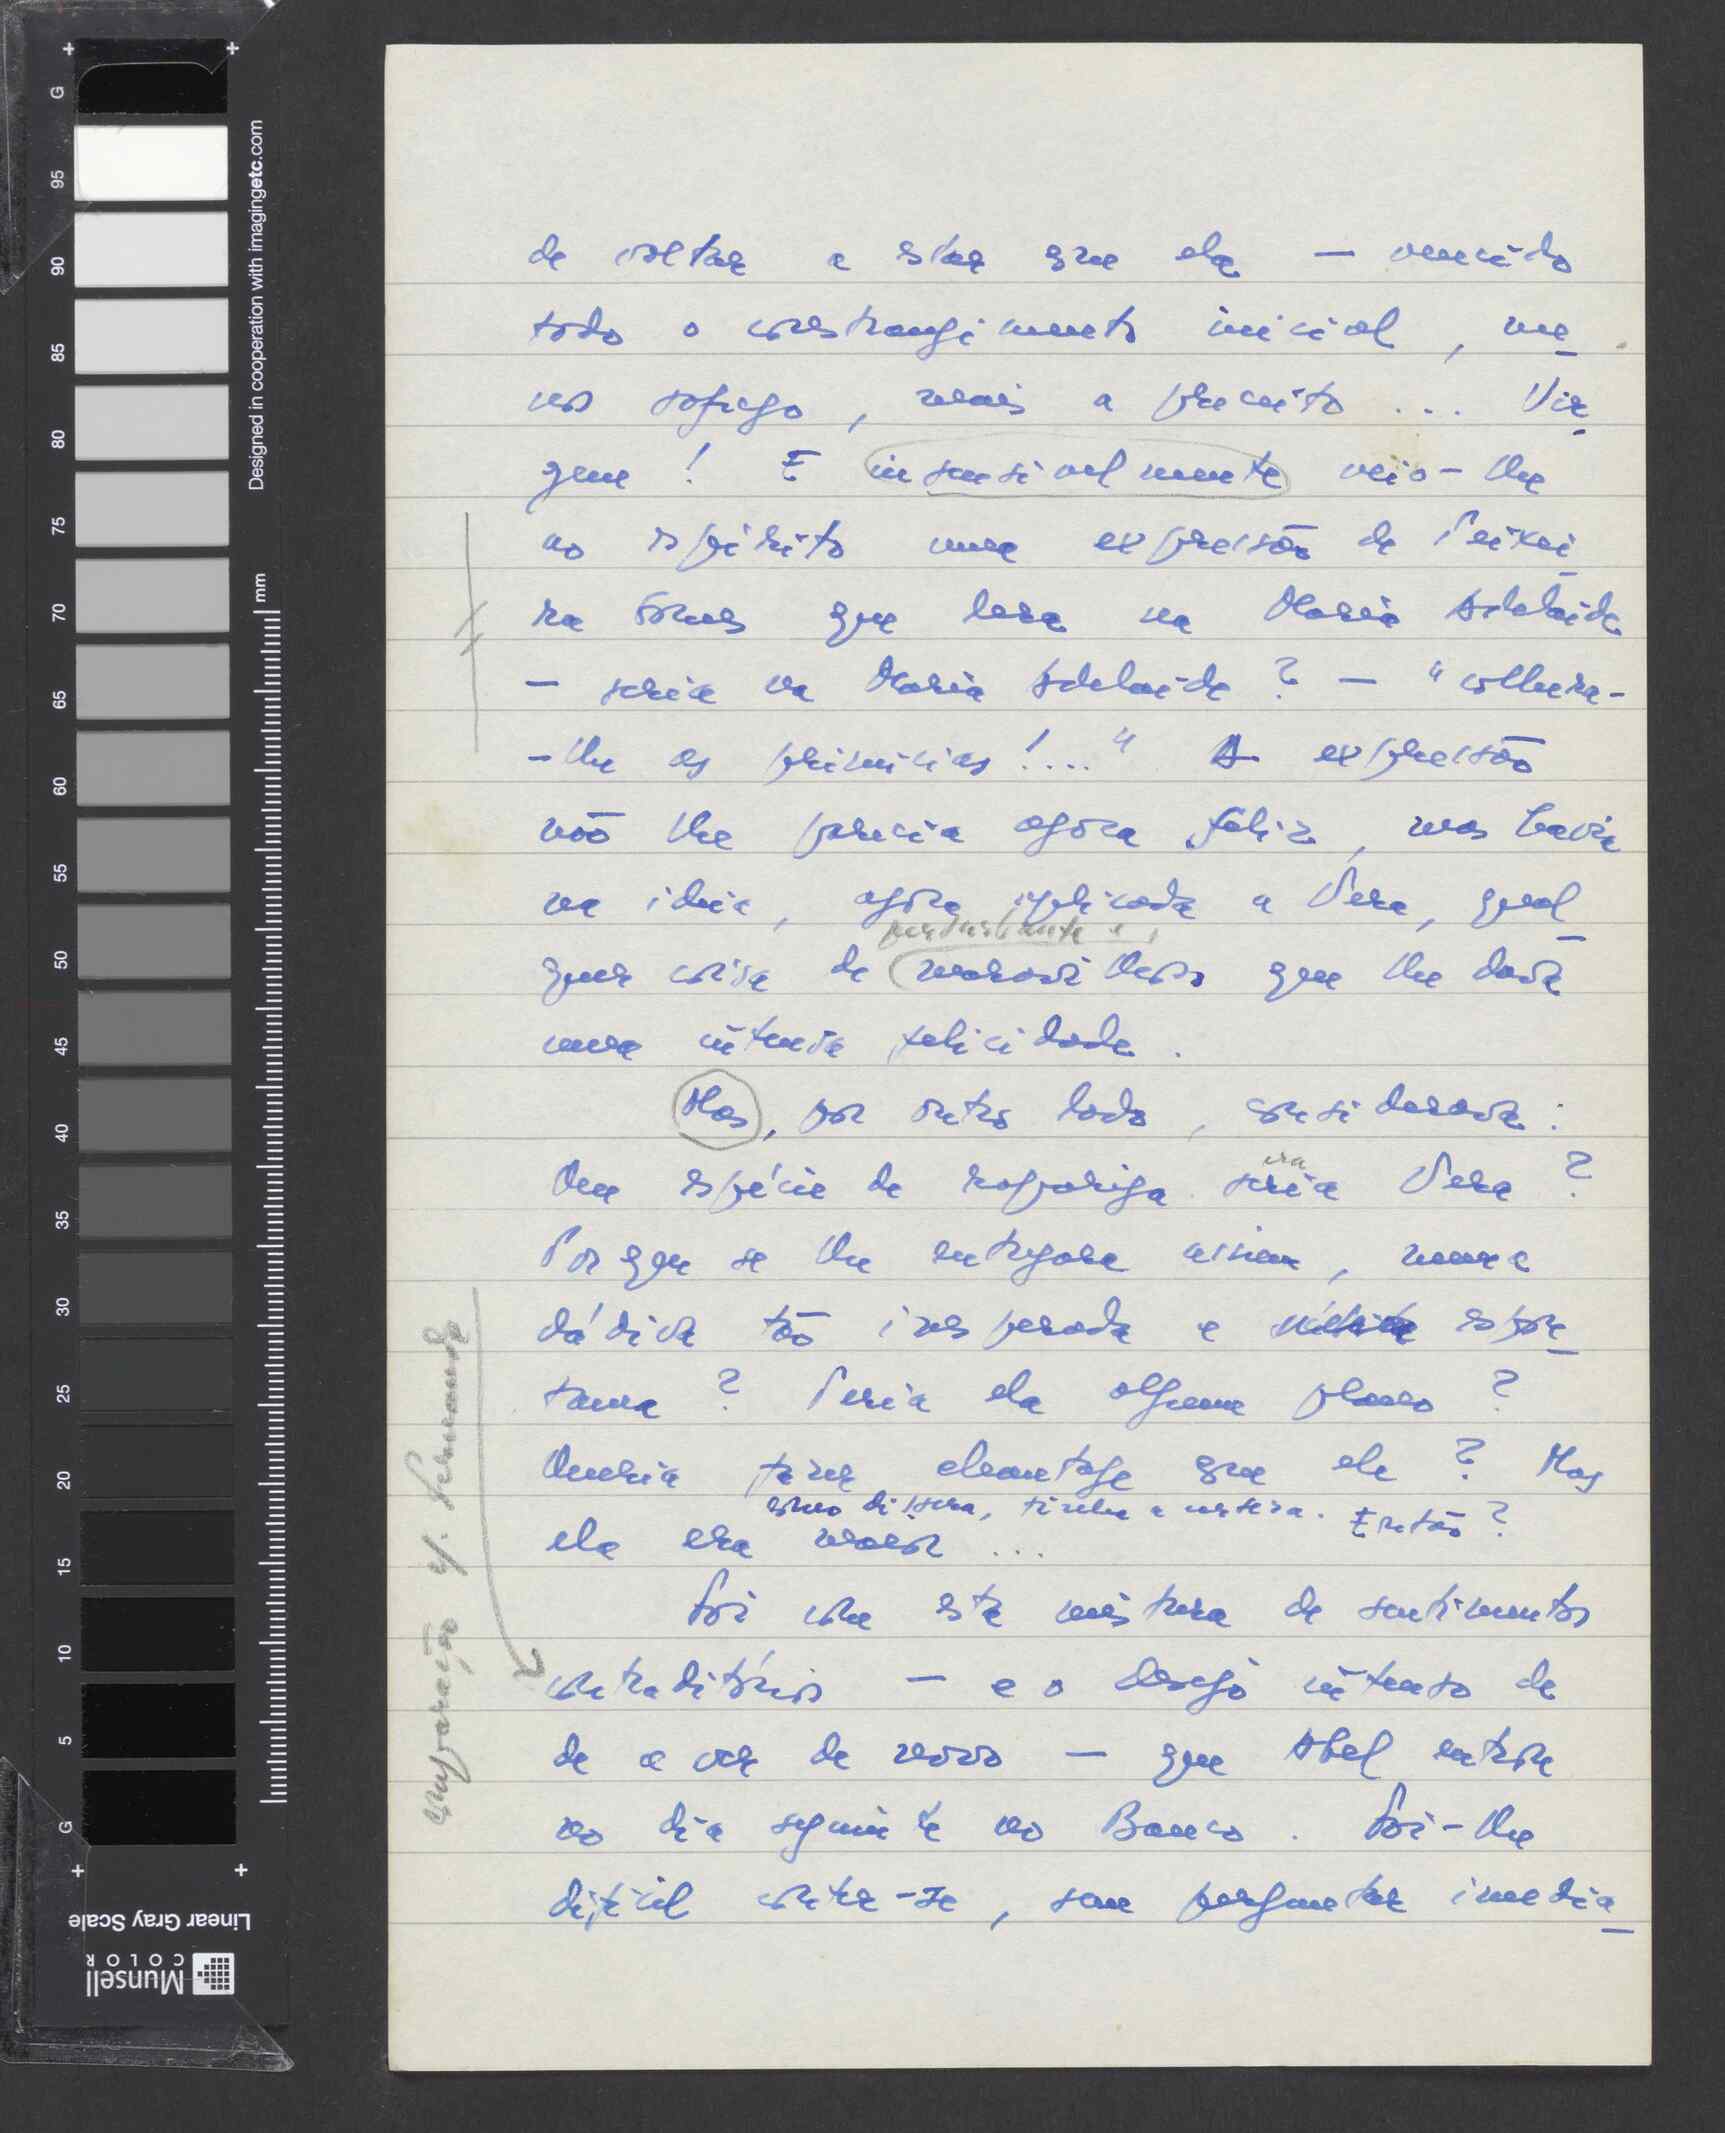 de voltar a estar com ela — vencido
todo o constrangimento inicial, me
nos sofrego, mais a preceito... Vir
gem! E insensivelmente veio-lhe
ao espírito uma expressão de Teixei
ra Gomes que lera na Maria Adelaide
— seria na Maria Adelaide? — "colhera-
-lhe as primicias!..." A expressão
não lhe parecia agora feliz, mas havia
na ideia, agora aplicada a Vera, qual
perturbante e,
quer coisa de maravilhoso que lhe dava
uma intensa felicidade.
Mas, por outro lado, considerava:
era
Que espécie de rapariga seria Vera?
Porque se lhe entregara assim, numa
dádiva tão inesperada e espon
tanea? Teria ela algum plano?
Queria fazer chantage com ele? Mas
como dissera, tinha a certeza. Então?
ela era maior...
Foi com esta mistura de sentimentos
contraditórios — e o desejo intenso de
de a ver de novo — que Abel entrou
no dia seguinte no Banco. Foi-lhe
difícil conter-se, sem perguntar imedia
comparação c/. Fernanda
Designed in cooperation with imagingetc.com
mm
G
95
90
85
80
75
70
65
60
55
50
45
40
35
30
25
20
15
10
5
G
Linear Gray Scale
Munsell
COLOR